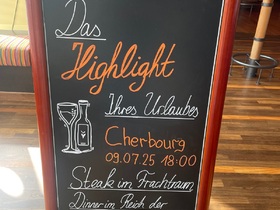 Das
Highlight
Ihres Urlaubes
Cherbourg
09.07.25 18:00
Steak im Frachtraum
Dinner im Reich der